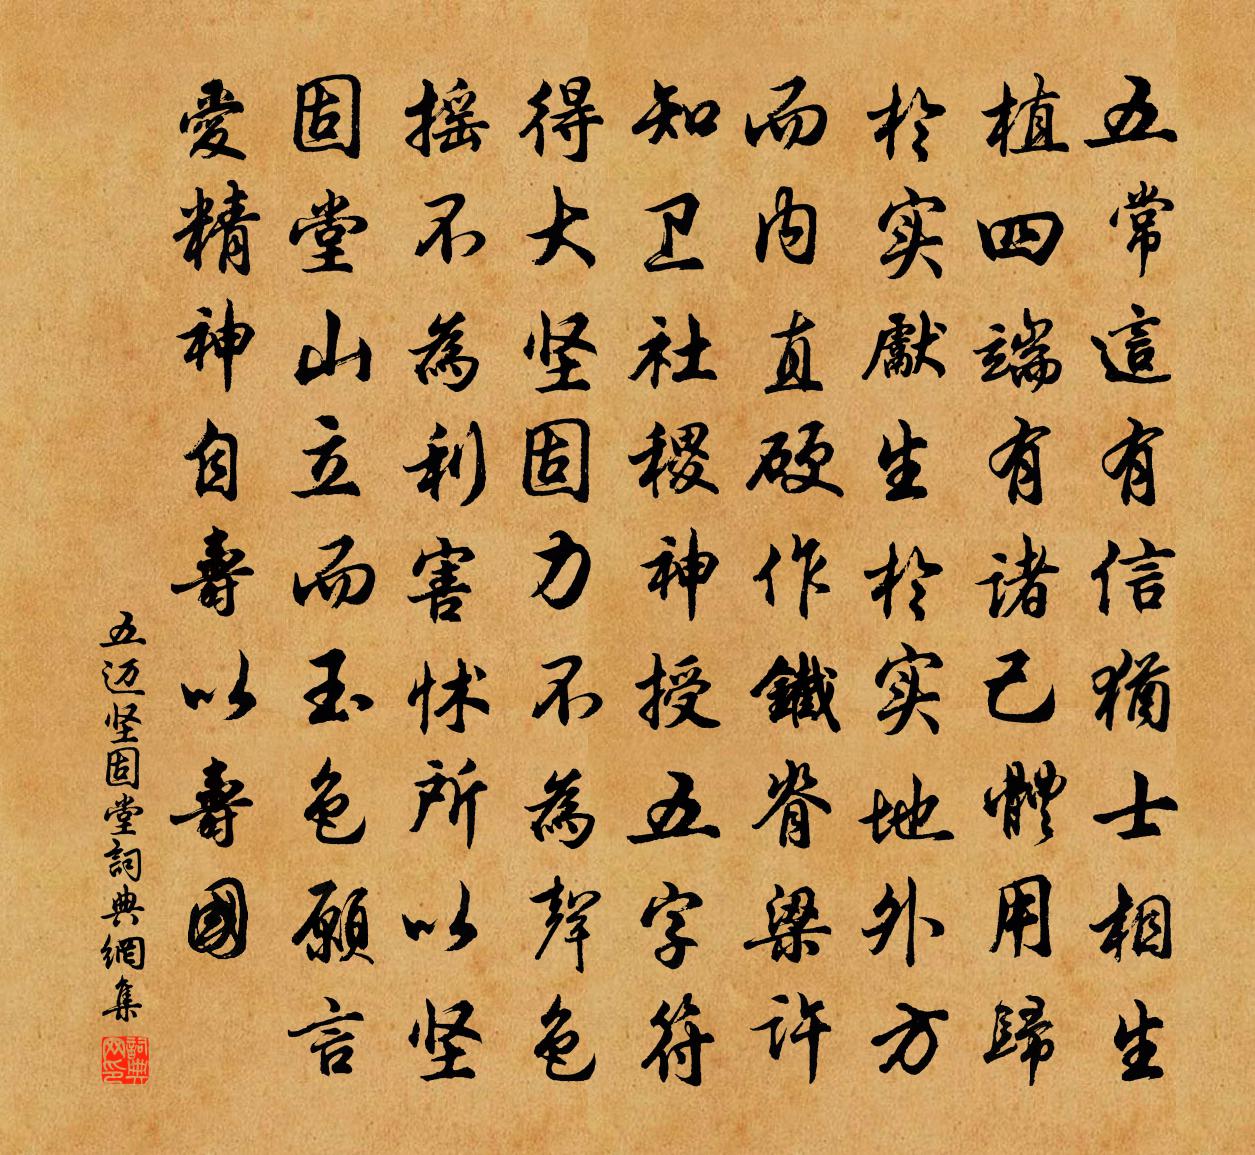 五常這有信猶士相生
植四端有諸己體用歸
於实獻生於实地外方
而内直硬作鐵脊梁許
知卫社稷神授五字符
得大坚固力不為聲色
摇不為利害怵所以坚
固堂山立而玉色願言
愛精神自壽以壽國
五迈坚固堂詞典網集
詞典网印